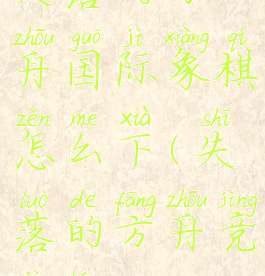 zhōu guó jì xiàng qí
舟国际象棋
zěn me xià shī
怎么下(失
luò de fāng zhōu jìng
落的方舟竞